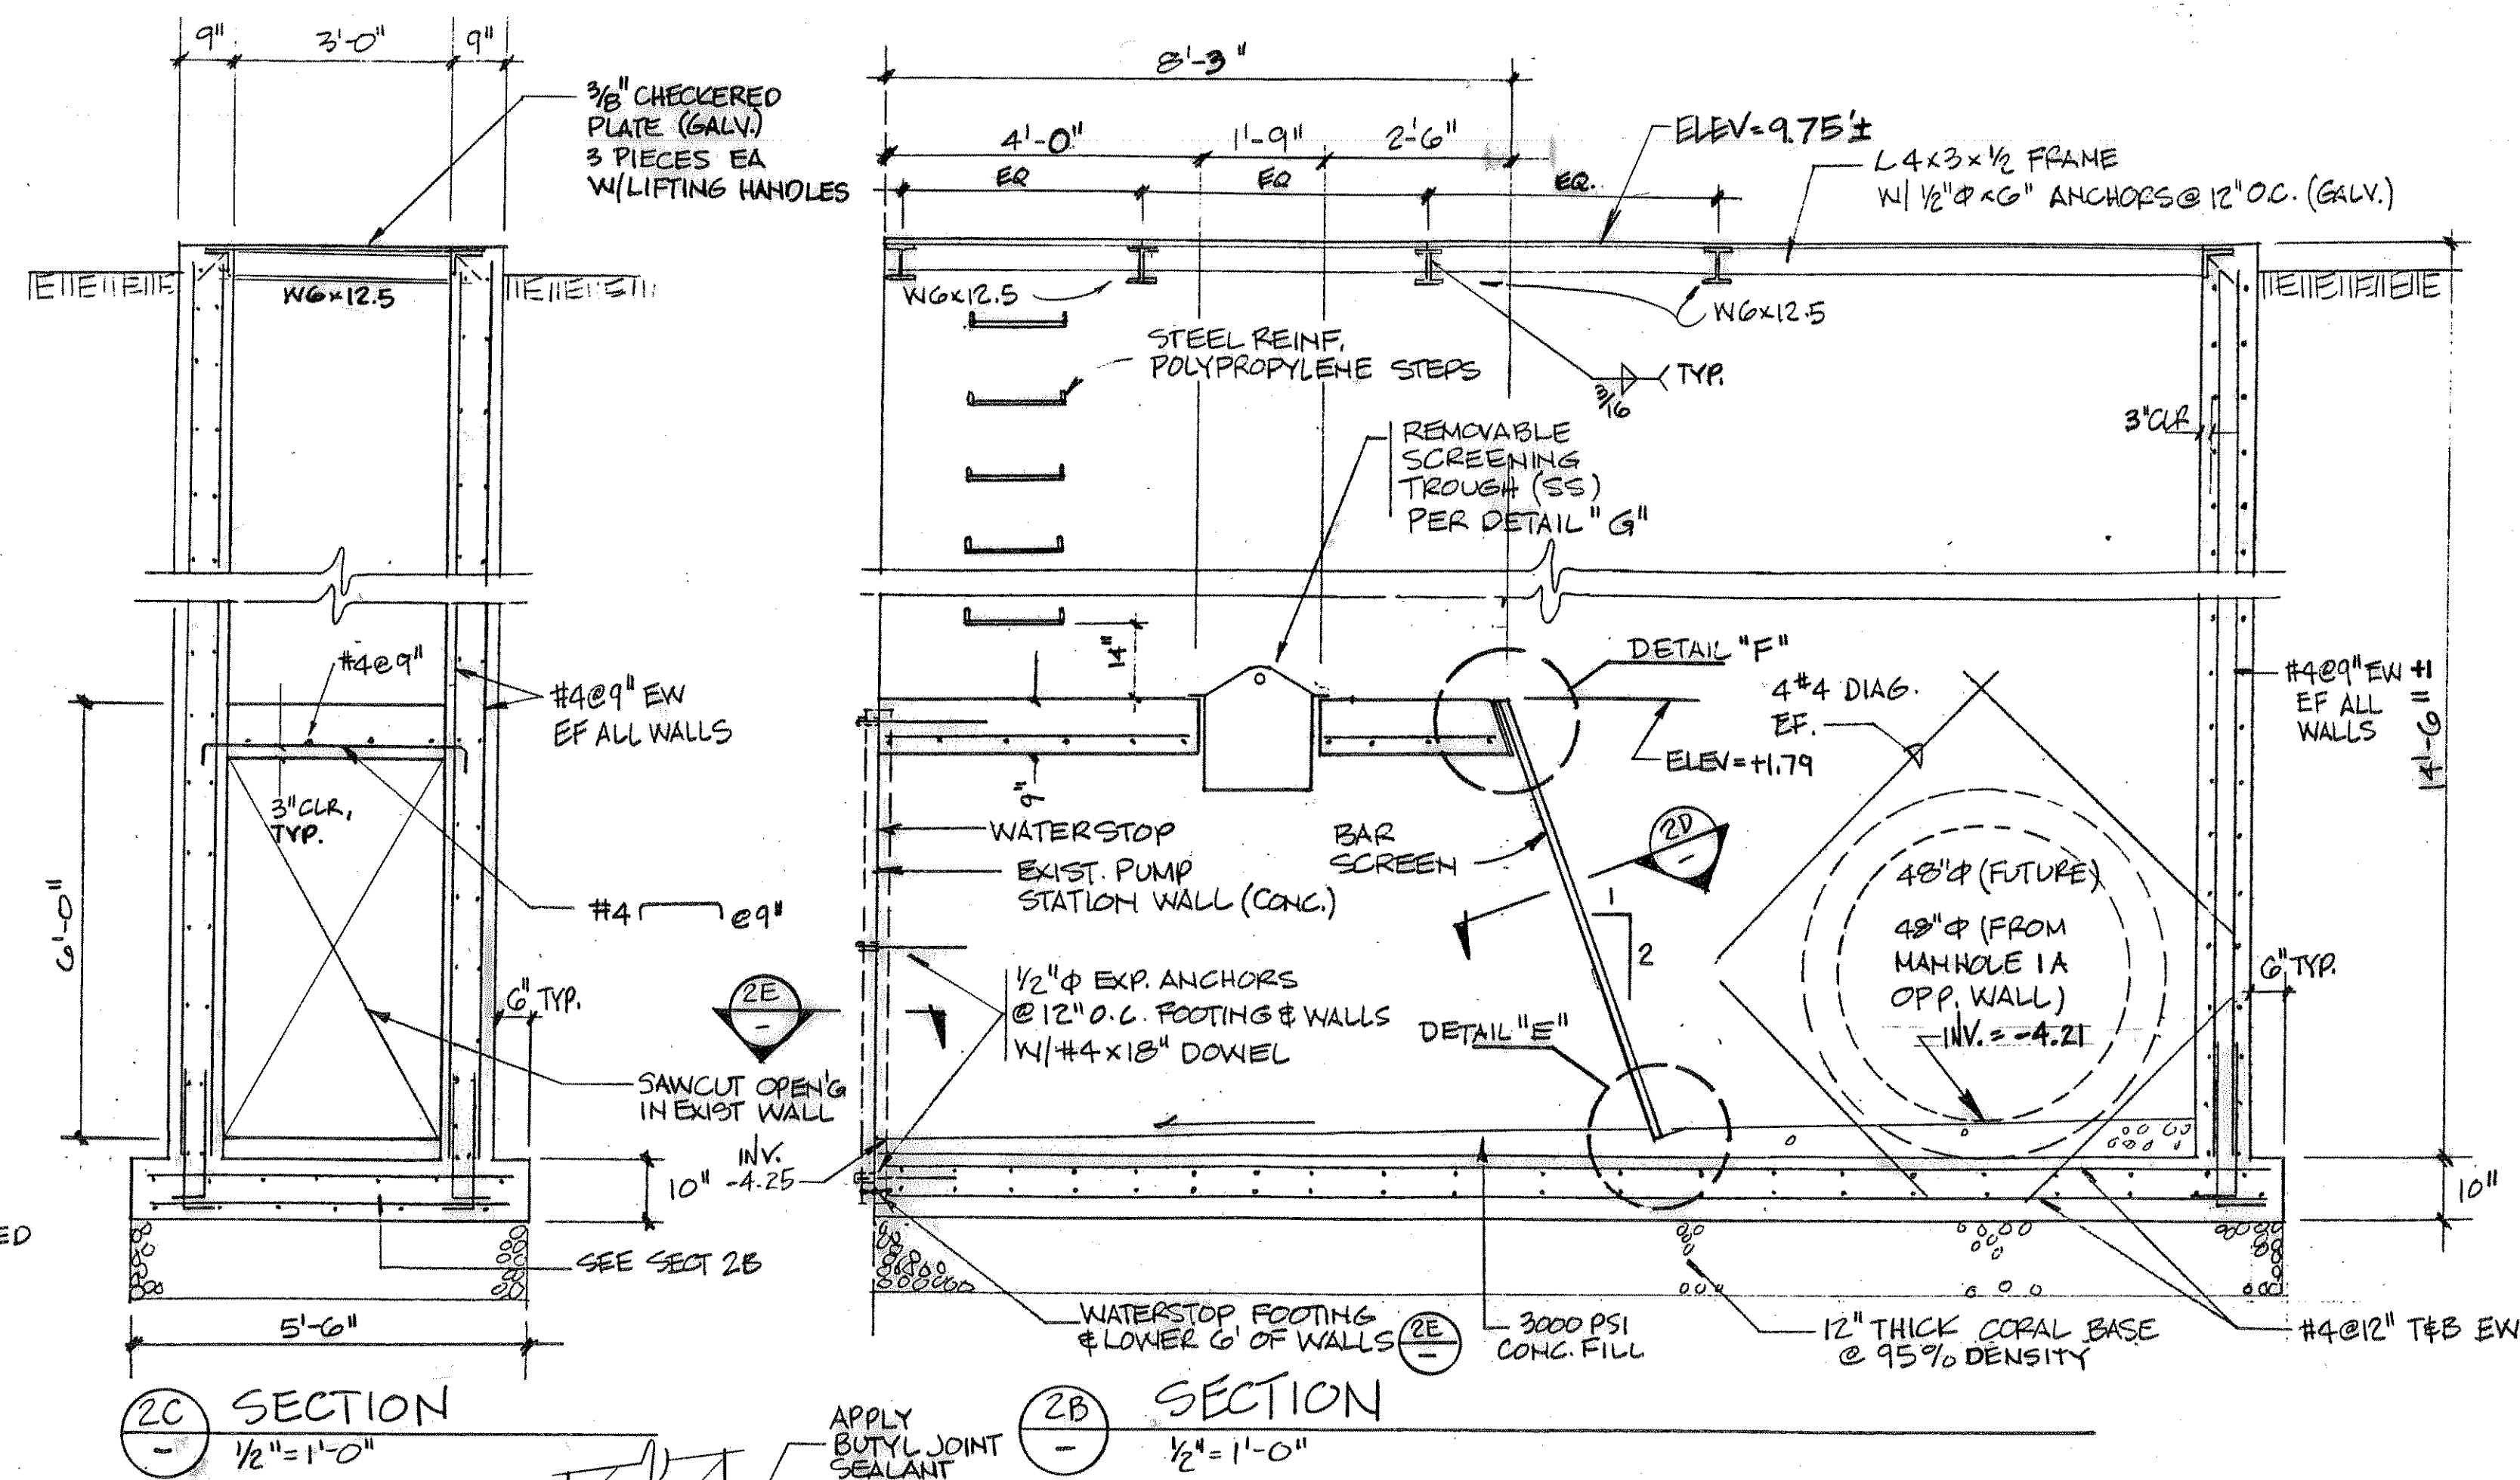 9"
3'-0"
9"
3/8" CHECKERED
PLATE (GALV.)
3 PIECES EA
W/LIFTING HANDLES
W6x12.5
#4@9"
#4@9" EW
EF ALL WALLS
3" CLR,
TYP.
6'-0"
#4 @9"
6" TYP.
SAWCUT OPEN'G
IN EXIST WALL
10"
SEE SECT 2B
5'-6"
ED
2C
-
SECTION
1/2"=1'-0"
8'-3"
4'-0"
1'-9"
2'-6"
EQ
EQ
EQ.
ELEV=9.75'±
L 4x3x1/2 FRAME
W/ 1/2"Φx6" ANCHORS@12"O.C. (GALV.)
W6x12.5
W6x12.5
STEEL REINF.
POLYPROPYLENE STEPS
3/16
TYP.
REMOVABLE
SCREENING
TROUGH (SS)
PER DETAIL "G"
3"CLR
14"
DETAIL "F"
4#4 DIAG.
EF.
#4@9" EW +1
EF ALL
WALLS
14'-6"
ELEV=+1.79
9"
WATERSTOP
EXIST. PUMP
STATION WALL (CONC.)
BAR
SCREEN
2D
-
1
2
48"Φ (FUTURE)
48"Φ (FROM
MANHOLE 1A
OPP. WALL)
INV.= -4.21
6" TYP.
2E
-
1/2"Φ EXP. ANCHORS
@12"O.C. FOOTING & WALLS
W/#4x18" DOWEL
DETAIL "E"
INV.
-4.25
10"
WATERSTOP, FOOTING
& LOWER 6' OF WALLS
2E
-
3000 PSI
CONC. FILL
12" THICK CORAL BASE
@ 95% DENSITY
#4@12" T&B EW
2B
-
SECTION
1/2"=1'-0"
APPLY
BUTYL JOINT
SEALANT